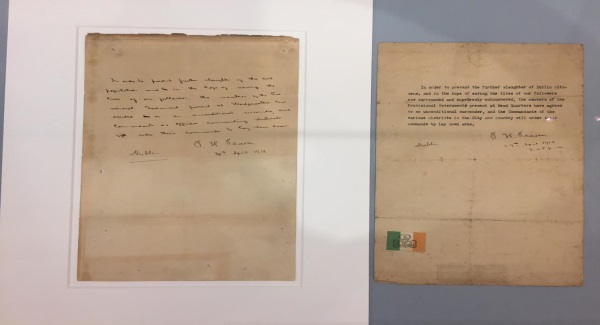 In order to prevent further slaughter of the
population and in the hope of saving the
lives of our followers, the members of the
Provisional Government present at Headquarters have
an unconditional surrender, and
Commandants or officers commanding districts
will order their commands to lay down arms.
P H Pearse
Dublin
30th April 1916
In order to prevent the further slaughter of Dublin citi-
zens, and in the hope of saving the lives of our followers
now surrounded and hopelessly outnumbered, the members of the
Provisional Government present at Head Quarters have agreed
to an unconditional surrender, and the Commandants of the
various districts in the City and Country will order their
commands to lay down arms.
P H Pearse
Dublin
29th April 1916